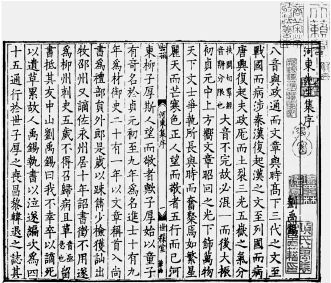 河東先生集序
劉禹錫
八音與政通而文章與時高下三代之文至
戰國而病涉秦漢復起漢之文至列國而病
唐興復起夫政厖而土裂三光五嶽之氣分
大音不完故必混一而後大振
初貞元中上方嚮文章昭回之光下飾萬物
天下文士爭執所長與時而奮粲焉如繁星
麗天而芒寒色正人望而敬者五行而已河
河東集序
一
世綵堂
東柳子厚斯人望而敬者歟子厚始以童子
有奇名於貞元初至九年為名進士十有九
年為材御史二十有一年以文章稱首入尚
書為禮部員外郎是歲以疎雋少檢獲訕出
牧邵州又謫佐永州居十年詔書徵不用遂
為柳州刺史五歲不得召歸病且革留
書抵其友中山劉禹錫曰我不幸卒以謫死
以遺草累故人禹錫執書以泣遂編次為四
十五通行於世子厚之喪昌黎韓退之誌其